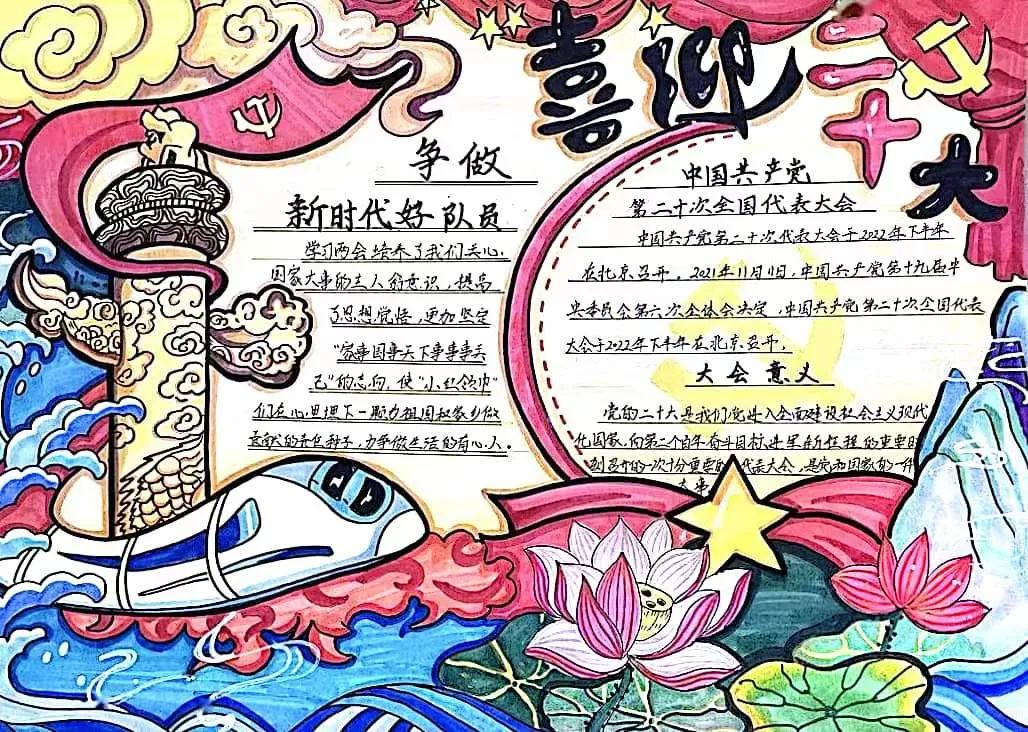 喜迎二十大
争做
新时代好队员
学习两会培养了我们关心
国家大事的主人翁意识，提高
了思想觉悟，更加坚定
"家事国事天下事事事关
己"的志向，使"小红领巾"
们在心里埋下一颗为祖国和家乡做
贡献的种子，力争做生活的有心人。
中国共产党
第二十次全国代表大会
中国共产党第二十次代表大会于2022年下半年
在北京召开。2021年11月11日，中国共产党第十九届中
央委员会第六次全体会决定，中国共产党第二十次全国代表
大会于2022年下半年在北京召开。
大会意义
党的二十大是我们党进入全面建设社会主义现代
化国家，向第二个百年奋斗目标进军新征程的重要时
刻召开的一次十分重要的代表大会，是党和国家的一件
大事